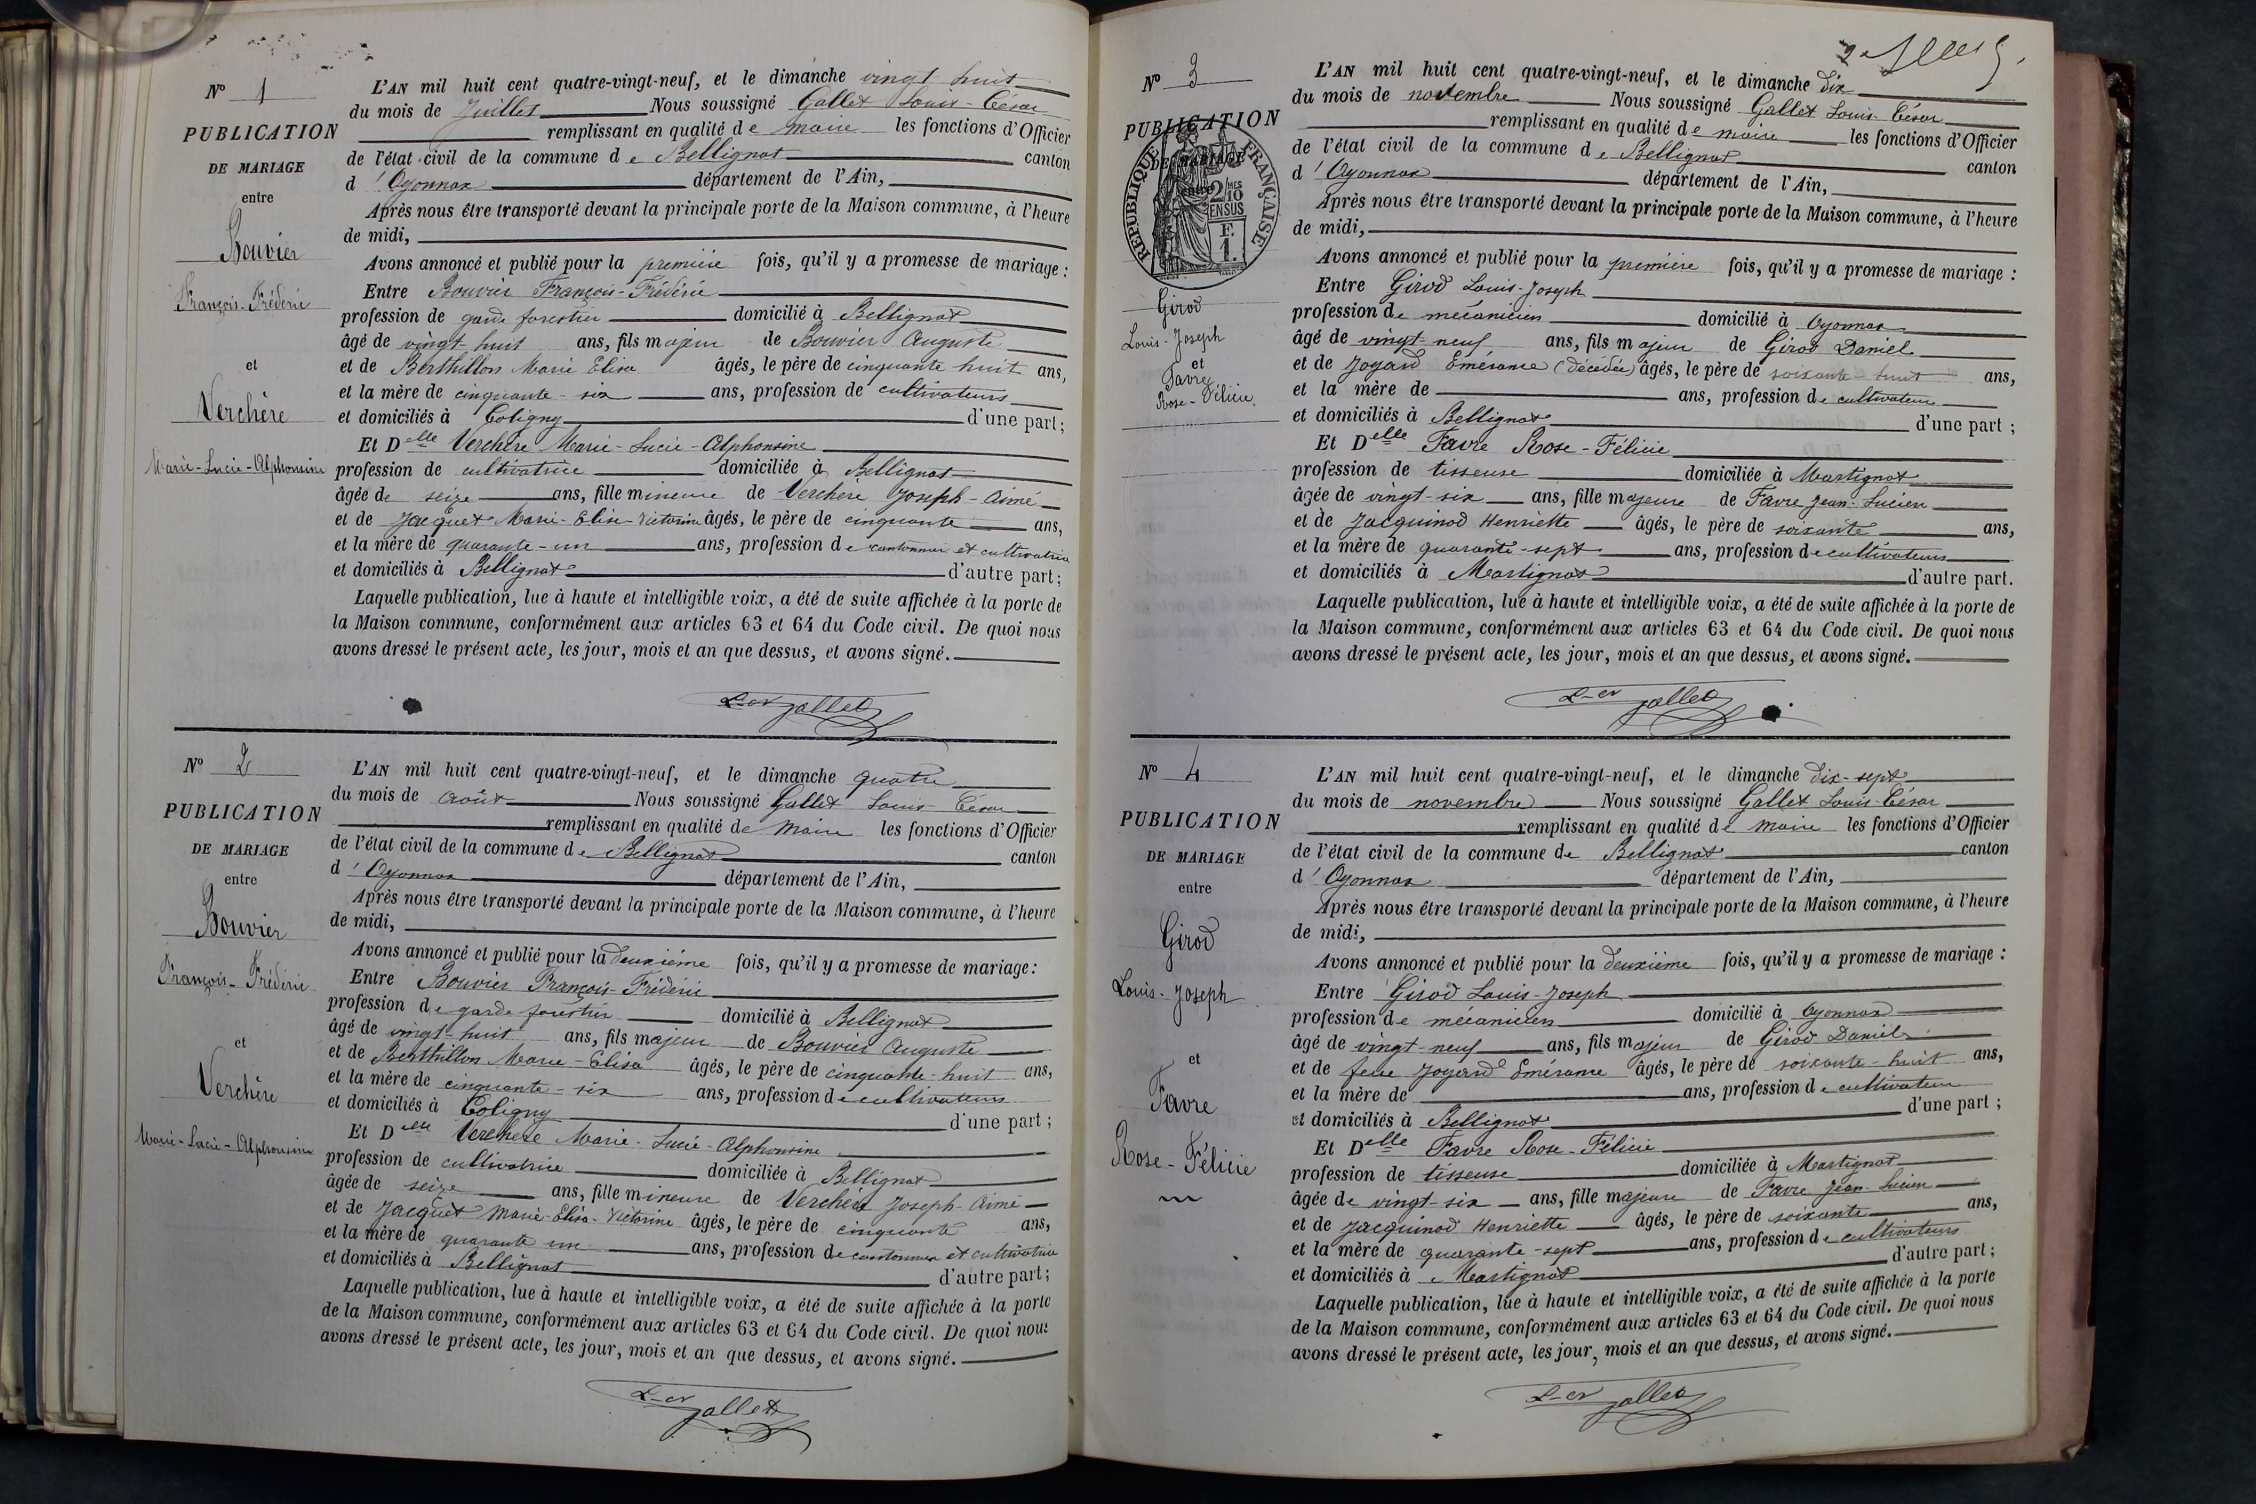 N° 1
PUBLICATION
DE MARIAGE
entre
Bouvier
François-Frédéric
et
Verchère
Marie-Lucie-Alphonsine
L'AN mil huit cent quatre-vingt-neuf, et le dimanche vingt huit
du mois de Juillet Nous soussigné Gallet Louis-César
remplissant en qualité de maire les fonctions d'Officier
de l'état civil de la commune de Bellignat canton
d'Oyonnax département de l'Ain,
Après nous être transporté devant la principale porte de la Maison commune, à l'heure
de midi,
Avons annoncé et publié pour la première fois, qu'il y a promesse de mariage :
Entre Bouvier François-Frédéric
profession de garde forestier domicilié à Bellignat
âgé de vingt-huit ans, fils majeur de Bouvier Auguste
et de Berthillon Marie Elisa âgés, le père de cinquante huit ans,
et la mère de cinquante-six ans, profession de cultivateurs
et domiciliés à Coligny d'une part ;
Et Delle Verchère Marie-Lucie-Alphonsine
profession de cultivatrice domiciliée à Bellignat
âgée de seize ans, fille mineure de Verchère Joseph-Aimé
et de Jacquet Marie-Elisa-Victorine âgés, le père de cinquante ans,
et la mère de quarante-un ans, profession de cantonnier et cultivatrice
et domiciliés à Bellignat d'autre part ;
Laquelle publication, lue à haute et intelligible voix, a été de suite affichée à la porte de
la Maison commune, conformément aux articles 63 et 64 du Code civil. De quoi nous
avons dressé le présent acte, les jour, mois et an que dessus, et avons signé.
L-er Gallet
N° 2
PUBLICATION
DE MARIAGE
entre
Bouvier
François-Frédéric
et
Verchère
Marie-Lucie-Alphonsine
L'AN mil huit cent quatre-vingt-neuf, et le dimanche quatre
du mois de Août Nous soussigné Gallet Louis César
remplissant en qualité de Maire les fonctions d'Officier
de l'état civil de la commune de Bellignat canton
d'Oyonnax département de l'Ain,
Après nous être transporté devant la principale porte de la Maison commune, à l'heure
de midi,
Avons annoncé et publié pour la deuxième fois, qu'il y a promesse de mariage :
Entre Bouvier François-Frédéric
profession de garde-forestier domicilié à Bellignat
âgé de vingt-huit ans, fils majeur de Bouvier Auguste
et de Berthillon Marie-Elisa âgés, le père de cinquante-huit ans,
et la mère de cinquante-six ans, profession de cultivateurs
et domiciliés à Coligny d'une part ;
Et Delle Verchère Marie-Lucie-Alphonsine
profession de cultivatrice domiciliée à Bellignat
âgée de seize ans, fille mineure de Verchère Joseph-Aimé
et de Jacquet Marie-Elisa-Victorine âgés, le père de cinquante ans,
et la mère de quarante un ans, profession de cantonnier et cultivatrice
et domiciliés à Bellignat d'autre part ;
Laquelle publication, lue à haute et intelligible voix, a été de suite affichée à la porte
de la Maison commune, conformément aux articles 63 et 64 du Code civil. De quoi nous
avons dressé le présent acte, les jour, mois et an que dessus, et avons signé.
L-er Gallet
N° 3
PUBLICATION
DE MARIAGE
entre
RÉPUBLIQUE FRANÇAISE
2/10
EN SUS
F.
1.
Girod
Louis-Joseph
et
Favre
Rose-Félicie.
L'AN mil huit cent quatre-vingt-neuf, et le dimanche dix
du mois de novembre Nous soussigné Gallet Louis-César
remplissant en qualité de maire les fonctions d'Officier
de l'état civil de la commune de Bellignat canton
d'Oyonnax département de l'Ain,
Après nous être transporté devant la principale porte de la Maison commune, à l'heure
de midi,
Avons annoncé et publié pour la première fois, qu'il y a promesse de mariage :
Entre Girod Louis-Joseph
profession de mécanicien domicilié à Oyonnax
âgé de vingt-neuf ans, fils majeur de Girod Daniel
et de Joyard Emérance (décédée) âgés, le père de soixante-huit ans,
et la mère de ans, profession de cultivateur
et domiciliés à Bellignat d'une part ;
Et Delle Favre Rose-Félicie
profession de tisseuse domiciliée à Martignat
âgée de vingt-six ans, fille majeure de Favre Jean-Lucien
et de Jacquinod Henriette âgés, le père de soixante ans,
et la mère de quarante-sept ans, profession de cultivateurs
et domiciliés à Martignat d'autre part.
Laquelle publication, lue à haute et intelligible voix, a été de suite affichée à la porte de
la Maison commune, conformément aux articles 63 et 64 du Code civil. De quoi nous
avons dressé le présent acte, les jour, mois et an que dessus, et avons signé.
L-er Gallet
N° 4
PUBLICATION
DE MARIAGE
entre
Girod
Louis-Joseph
et
Favre
Rose-Félicie
L'AN mil huit cent quatre-vingt-neuf, et le dimanche dix-sept
du mois de novembre Nous soussigné Gallet Louis-César
remplissant en qualité de maire les fonctions d'Officier
de l'état civil de la commune de Bellignat canton
d'Oyonnax département de l'Ain,
Après nous être transporté devant la principale porte de la Maison commune, à l'heure
de midi,
Avons annoncé et publié pour la deuxième fois, qu'il y a promesse de mariage :
Entre Girod Louis-Joseph
profession de mécanicien domicilié à Oyonnax
âgé de vingt-neuf ans, fils majeur de Girod Daniel
et de feue Joyard Emérance âgés, le père de soixante-huit ans,
et la mère de ans, profession de cultivateur
et domiciliés à Bellignat d'une part ;
Et Delle Favre Rose-Félicie
profession de tisseuse domiciliée à Martignat
âgée de vingt-six ans, fille majeure de Favre Jean-Lucien
et de Jacquinod Henriette âgés, le père de soixante ans,
et la mère de quarante-sept ans, profession de cultivateurs
et domiciliés à Martignat d'autre part ;
Laquelle publication, lue à haute et intelligible voix, a été de suite affichée à la porte
de la Maison commune, conformément aux articles 63 et 64 du Code civil. De quoi nous
avons dressé le présent acte, les jour, mois et an que dessus, et avons signé.
L-er Gallet